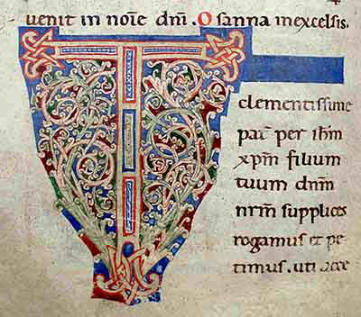 uenit in noīe dnī . Osanna inexcelsis.
T
e
clementissime
pat̄ per ihm̄
xpm̄ filium
tuum dnm̄
nr̄m supplices
rogamus et pe-
timus. uti acce